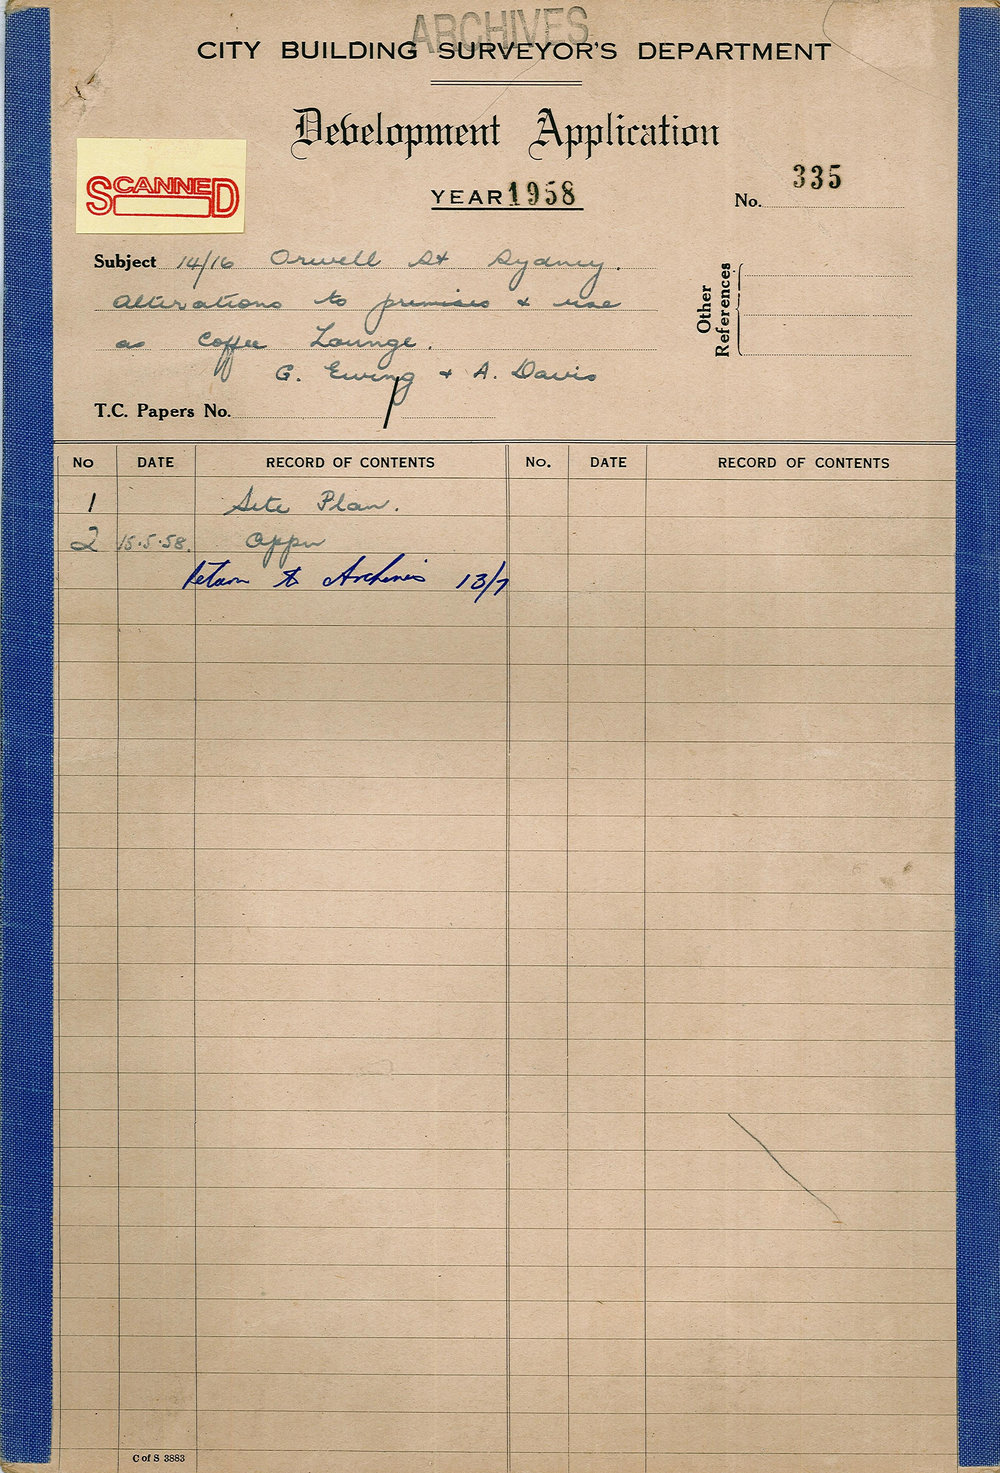 ARCHIVES
CITY BUILDING SURVEYOR'S DEPARTMENT
Development Application
SCANNED
YEAR 1958
No. 335
Subject 14/16 Orwell St Sydney.
alterations to premises & use
as Coffee Lounge.
G. Ewing & A. Davis
Other References
T.C. Papers No.
No DATE RECORD OF CONTENTS No. DATE RECORD OF CONTENTS
1 Site Plan.
2 15.5.58. Appn
Return to Archives 13/7
C of S 3883